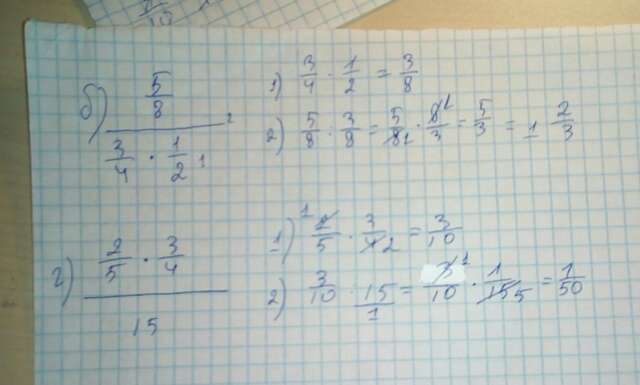 б) 5/8 / (3/4 · 1/2)
1) 3/4 · 1/2 = 3/8
2) 5/8 : 3/8 = 5/8 · 8/3 = 5/3 = 1 2/3
г) (2/5 · 3/4) / 15
1) 2/5 · 3/4 = 3/10
2) 3/10 : 15/1 = 3/10 · 1/15 = 1/50